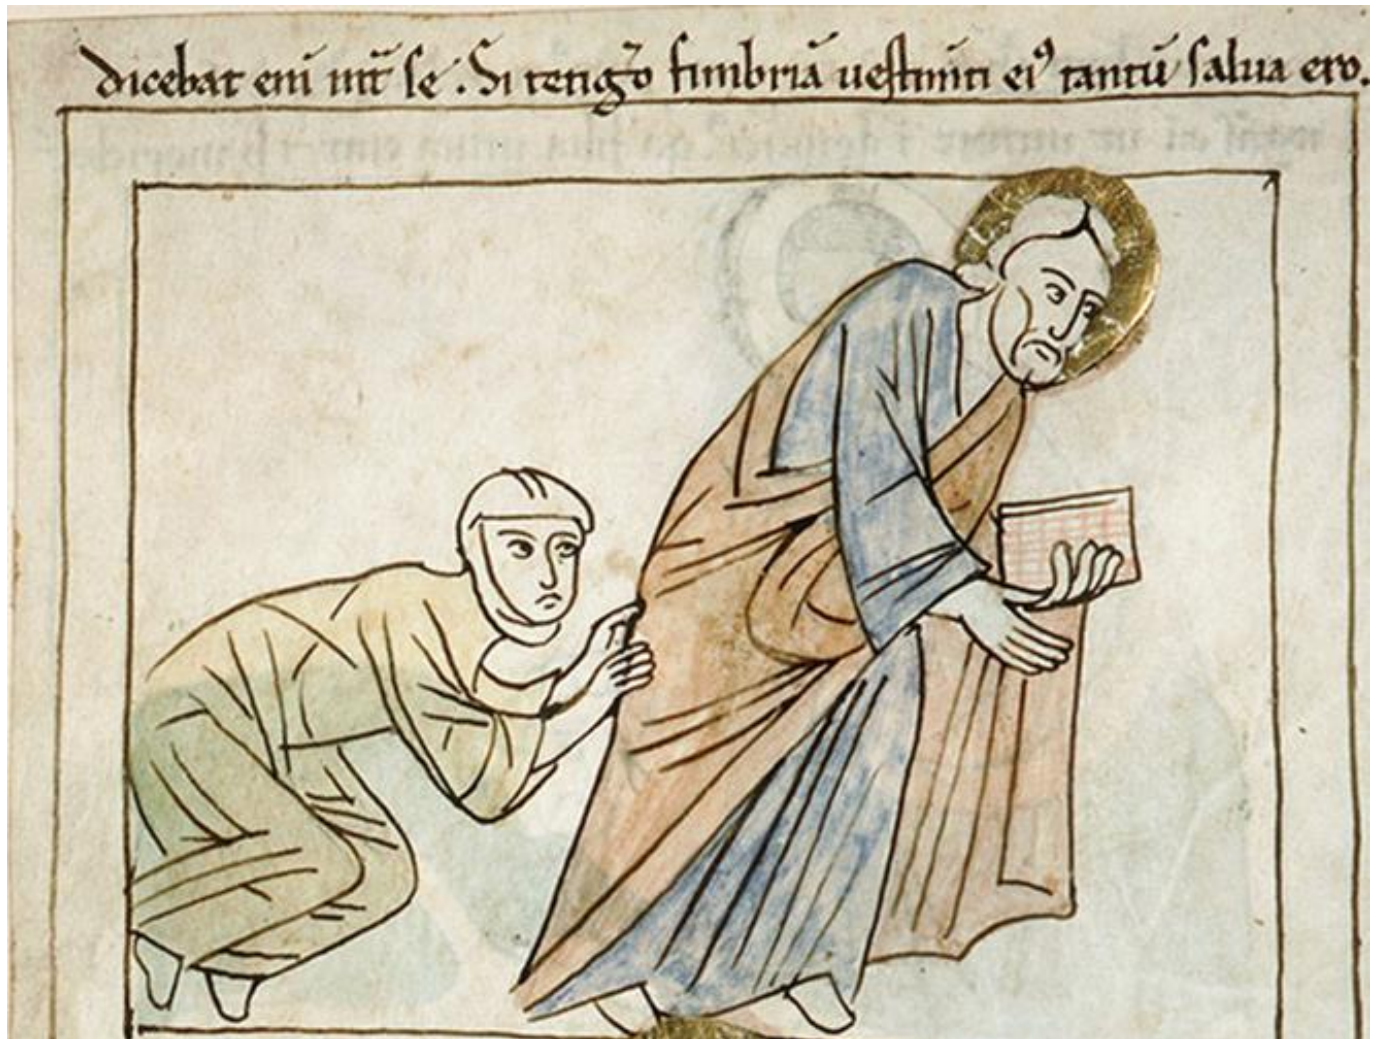 dicebat eni int̄ se . Si tetig̃o fimbriā vestim̄ti ei⁹ tantū salva ero.